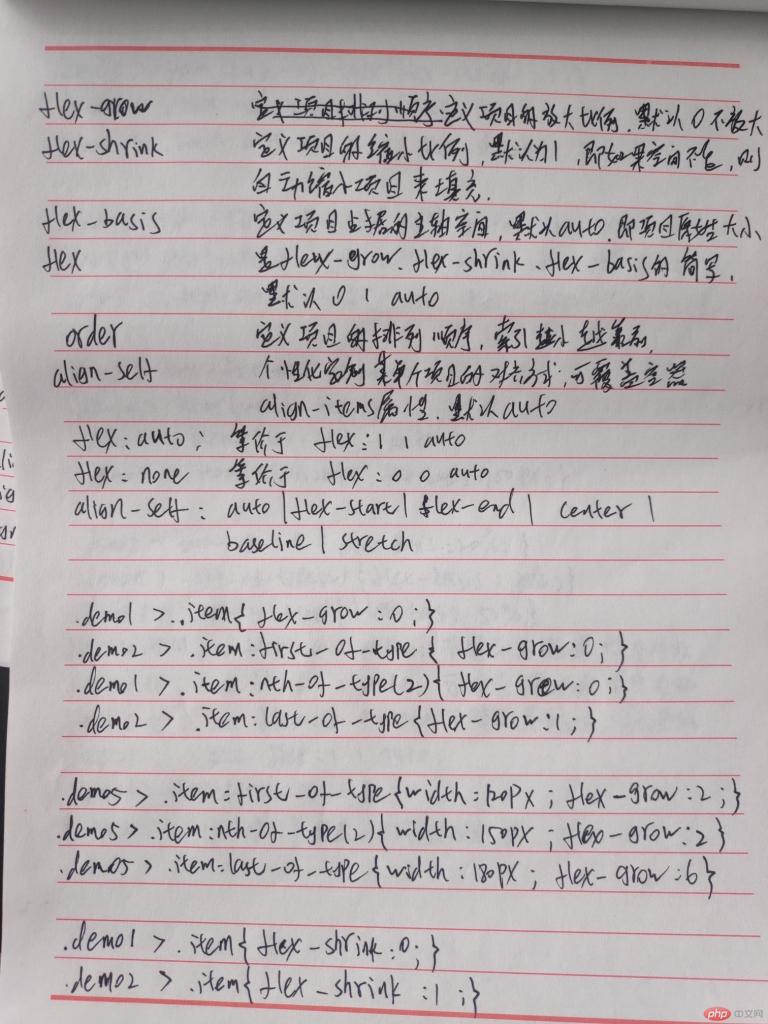 flex-grow 定义项目排列顺序 定义项目的放大比例,默认0不放大
flex-shrink 定义项目的缩小比例,默认为1,即如果空间不足,则
自动缩小项目来填充.
flex-basis 定义项目占据的主轴空间,默认auto.即项目原始大小
flex 是flex-grow.flex-shrink.flex-basis的简写,
默认0 1 auto
order 定义项目的排列顺序,索引越小越靠前,
align-self 个性化定制某单个项目的对齐方式,可覆盖容器
align-items属性.默认auto
flex:auto: 等价于 flex:1 1 auto
flex:none 等价于 flex:0 0 auto
align-self: auto|flex-start|flex-end| center |
baseline| stretch
.demo1 > .item{ flex-grow:0;}
.demo2 > .item:first-of-type{ flex-grow:0;}
.demo1 > .item:nth-of-type(2){ flex-grow:0;}
.demo2 > .item:last-of-type{flex-grow:1;}
.demo5 > .item:first-of-type{width:120px; flex-grow:2;}
.demo5 > .item:nth-of-type(2){width:150px; flex-grow:2}
.demo5 > .item:last-of-type{width:180px; flex-grow:6}
.demo1 > .item{ flex-shrink:0;}
.demo2 > .item{flex-shrink :1;}
php 中文网